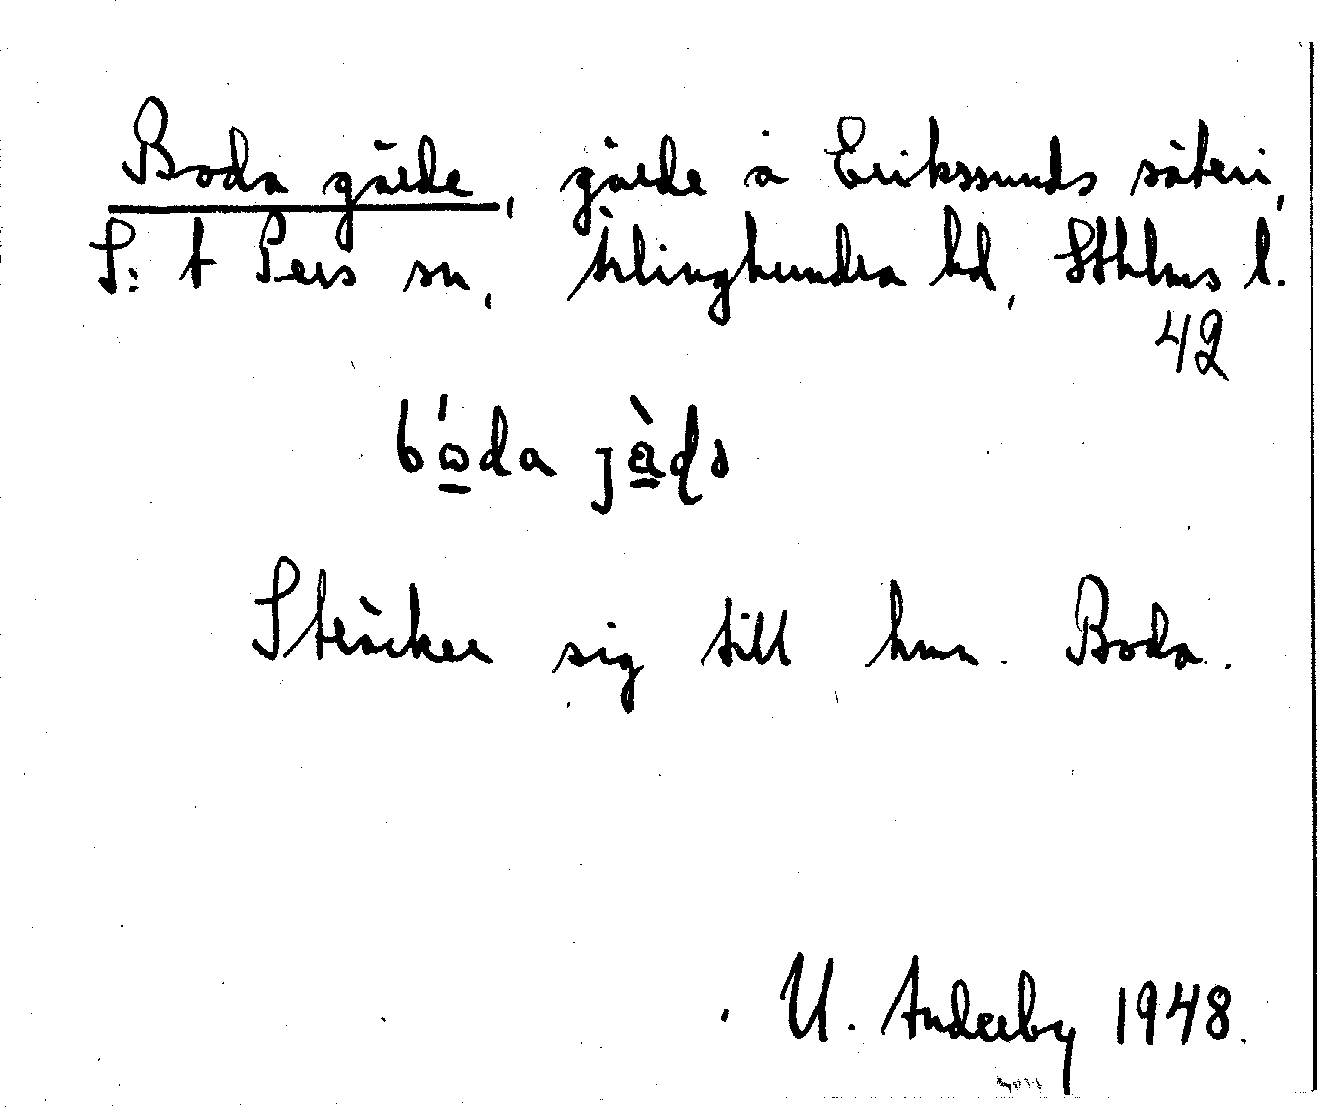 Boda gärde, gärde å Erikssunds säteri,
S:t Pers sn, Ärlinghundra hd, Sthlms l.
42
bo̲da jä̀də
Sträcker sig till hmn Boda.
U. Anderby 1948.